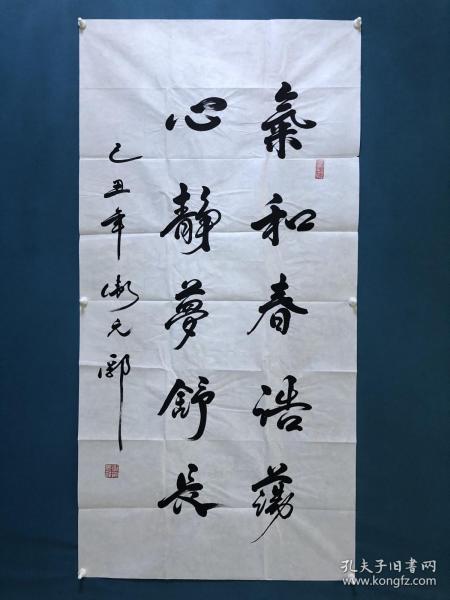 氣和春浩蕩
心靜夢舒長
己丑年衛元郛
孔夫子旧书网
www.kongfz.com